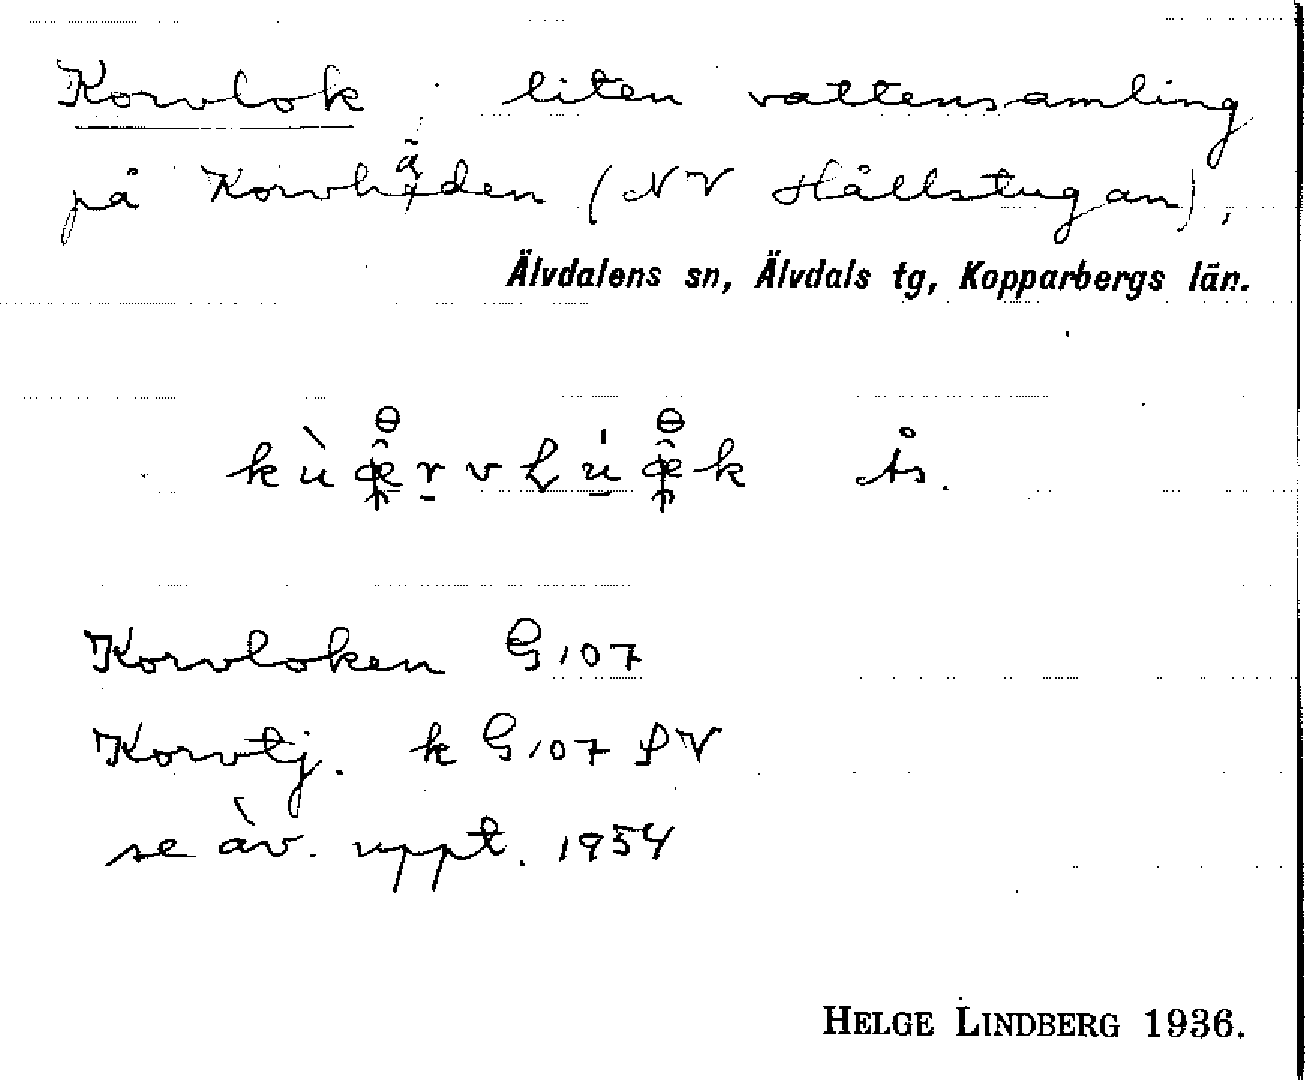 Korvlok, liten vattensamling
på Korvheden (NV Hållstugan),
Älvdalens sn, Älvdals tg, Kopparbergs län.
Ås.
Korvloken G 107
Korvtj. k G 107 SV
se äv. uppt. 1954
HELGE LINDBERG 1936.